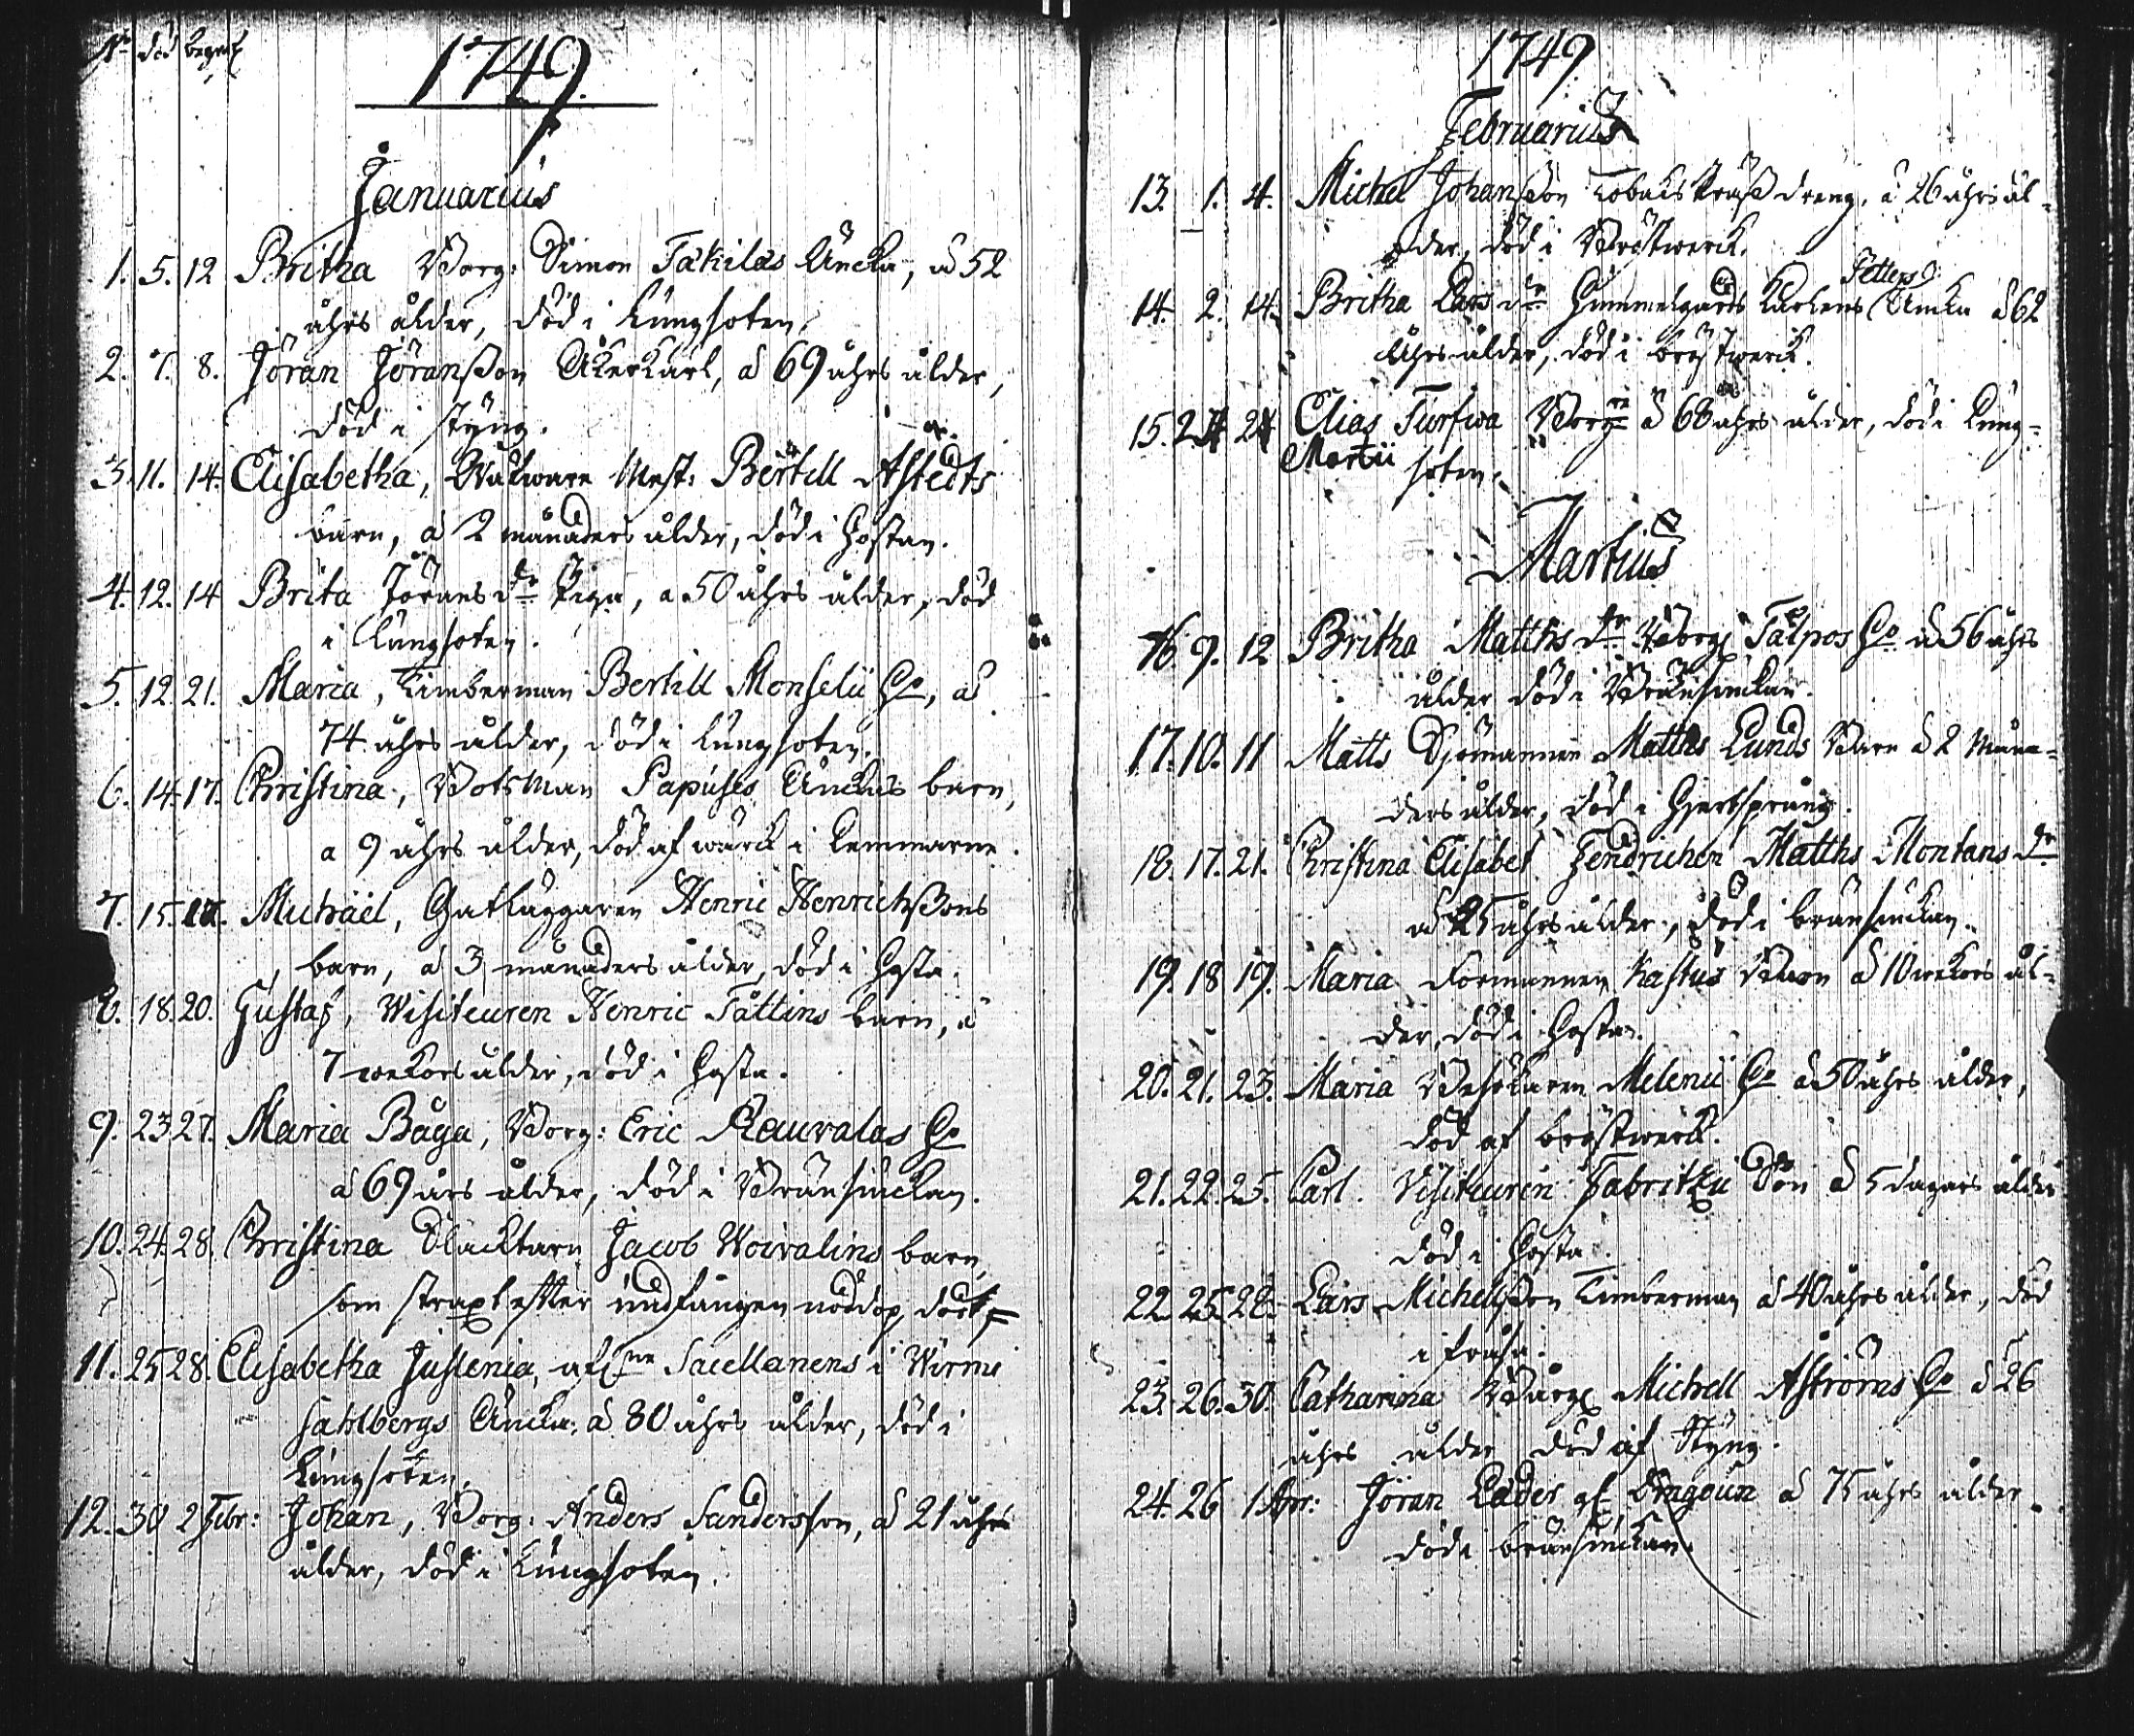 No död begraf
1749.
Januarius
1. 5. 12 Britha Borg: Simon Takilas Äncka, å 52
åhrs ålder, död i Lungsoten.
2. 7. 8. Jöran Jöransson Åkerkarl, å 69 åhrs ålder,
död i styng.
3. 11. 14. Elisabetha, Mest: Bertill Åstedts
barn, å 2 månaders ålder, död i Hostan.
4. 12. 14 Brita Jöransdr Piga, a 50 åhrs ålder, död
i Lungsoten.
5. 12. 21. Maria, Timberman Bertill Monselii Ho, å
74 åhrs ålder, död i Lungsoten.
6. 14. 17. Christina, Botsman Papuses Änckas barn,
a 9 åhrs ålder, död af wärck i Lemmarne.
7. 15. 17. Michäel, Gatläggaren Henric Henrichssons
barn, å 3 månaders ålder, död i Hosta.
8. 18. 20. Gustaf, Wisiteuren Henric Tåttins barn, å
7 wekors ålder, död i Hosta.
9. 23 27. Maria Båga, Borg: Eric Rauvalas Ho
å 69 års ålder, död i Bränsiuckan.
10. 24. 28. Christina Slacktarn Jacob Woivalins barn,
som straxt efter undfången nöddop dödt
11. 25 28. Elisabetha Juslenia, afl Sacellanens i Wirmo
Sahlbergs Äncka. å 80 åhrs ålder, död i
Lungsoten.
12. 30 2 Febr: Johan, Borg: Anders Sandersson, å 21 åhrs
ålder, död i Lungsoten.
1749
Februarius
13. 1. 4. Michel Johansson Tobaks dreng, å 26 åhrs ål-
der, död i Bröstwerck.
14. 2. 14. Britha Larsdr Hummelgårds Karlens Petters Äncka å 62
åhrs ålder, död i bröstwerck.
15. 24 24 Elias Turfwa Borg å 68 åhrs ålder, död i Lung-
Martii soten.
Martius
16. 9. 12 Britha Matthsdr Borg Talpos Ho å 56 åhrs
ålder död i Bränsiuckan.
17. 10. 11 Matts Sjömannen Matths Lunds Barn å 2 Måna-
ders ålder, död i Hjertsprång.
18. 17. 21. Christina Elisabet Fendrichen Matths Montans dr
å 25 åhrs ålder, död i bränsiuckan.
19. 18 19. Maria Formannen Kastus Barn å 10 wekors ål-
der, död i Hosta.
20. 21. 23. Maria Besökaren Melenii Ho å 50 åhrs ålder,
död af bröstwerck.
21. 22. 25. Carl. Visiteuren Fabritzii Son å 5 dagars ålder
död i Hosta.
22. 25. 28. Lars Michelsson Timberman å 40 åhrs ålder, död
i frossa.
23. 26. 30. Catharina Borg Michell Aströms Ho å 26
åhrs ålder död af Styng.
24. 26 1 Apr: Jöran Lader af Dragoun å 75 åhrs ålder
död i bränsiuckan.